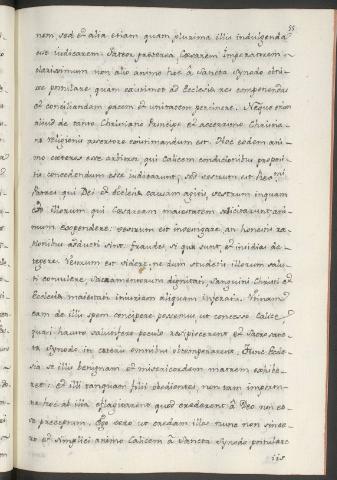 55
nem, sed et alia etiam quam plurima illis indulgenda
esse iudicarem. Fateor præterea, Cæsarem Imperatorem
clarissimum non alio animo hoc à Sancta Synodo obni-
xe postulare, quam
ad Ecclesiæ res componendas
et conciliandam pacem et unitatem pertinere. Neque enim
aliud de tanto Christiano Principe et acerrimo Christia-
næ religionis assertore existimandum est. Hoc eodem ani-
mo cæteros esse arbitror, qui Calicem conditionibus proposi-
tis concedendum esse iudicarunt, sed vestrum est
Patres qui Dei et Ecclesiæ causam agitis, vestrum inquam
est illorum qui Cæsaream maiestatem sollicitarunt ani-
mum expendere, vestrum est investigare, an honestis ra-
tionibus adducti sint, fraudes, si quæ sunt, et insidias de-
tegere. Vestrum est videre, ne dum studetis illorum salu-
ti consulere, Sacramentorum dignitati, sanguini Christi et
Ecclesiæ maiestati iniuriam aliquam inferatis. Utinam
eam de illis spem concipere possemus ut concesso Calice,
quasi hausto salutifero poculo resipiscerent et Sacrosanc-
tæ Synodo in cæteris omnibus obtemperarent. Tunc Eccle-
sia se illis benignam et misericordem matrem exhibe-
ret: et illi tanquam filii obedientes, non tam importu-
ne hoc ab illa efflagitarent quod crederent à Deo non es-
se præceptum. Ego vero ut credam illos nunc non since-
ro et simplici animo Calicem à Sancta Synodo postulare